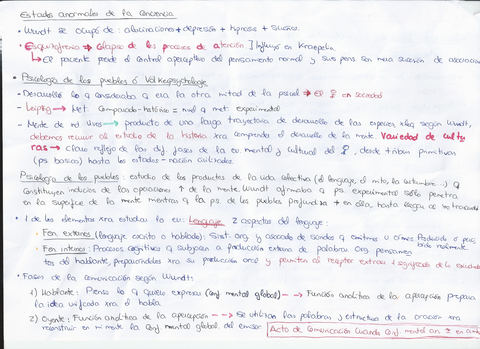 Estados anormales de la conciencia
• Wundt se ocupó de: alucinaciones + depresión + hipnosis + sueños.
• Esquizofrenia → Colapso de los procesos de atención ] Influyó en Kraepelin
↳ El paciente pierde el control aperceptivo del pensamiento normal y sus pens. son mera sucesión de asociaciones
• Psicología de los pueblos ó Völkerpsychologie
- Desarrolló lo q consideraba q era la otra mitad de la psicol → El ♀ en sociedad
- Leipzig → Met. Comparado-histórico = nivel q met experimental
- Mente de ind vivos → producto de una larga trayectoria de desarrollo de las especies, xlq según Wundt,
debemos recurrir al estudio de la historia xra comprender el desarrollo de la mente. Variedad de cultu
ras → Claro reflejo de las dif. fases de la ev. mental y cultural del ♀, desde tribus primitivas
(ps. básicas) hasta los estados-nación civilizados.
Psicología de los pueblos: estudio de los productos de la vida colectiva (el lenguaje, el mito, la costumbre...) q
constituyen indicios de las operaciones ↑ de la mente. Wundt afirmaba q ps. experimental sólo penetra
en la superficie de la mente mientras q la ps. de los pueblos profundiza + en ella, hasta llegar al yo
• 1 de los elementos xra estudiar la ev: Lenguaje. 2 aspectos del lenguaje:
• Fen. externos (lenguaje escrito o hablado): Sist. org. y asociado de sonidos q emitimos u oímos
• Fen. internos: Procesos cognitivos q subyacen a producción externa de palabras. Org. pensamien
tos del hablante, preparándolos xra su producción oral y permiten al receptor extraer significado de lo escuchado
• Fases de la comunicación según Wundt:
1) Hablante: Piensa lo q quiere expresar (Conf mental global) --→ Función analítica de la apercepción prepara
la idea unificada xra el habla
2) Oyente: Función analítica de la apercepción --→ Se utilizan las palabras y estructura de la oración xra
reconstruir en mi mente la conf. mental global del emisor. Acto de comunicación cuando conf mental en